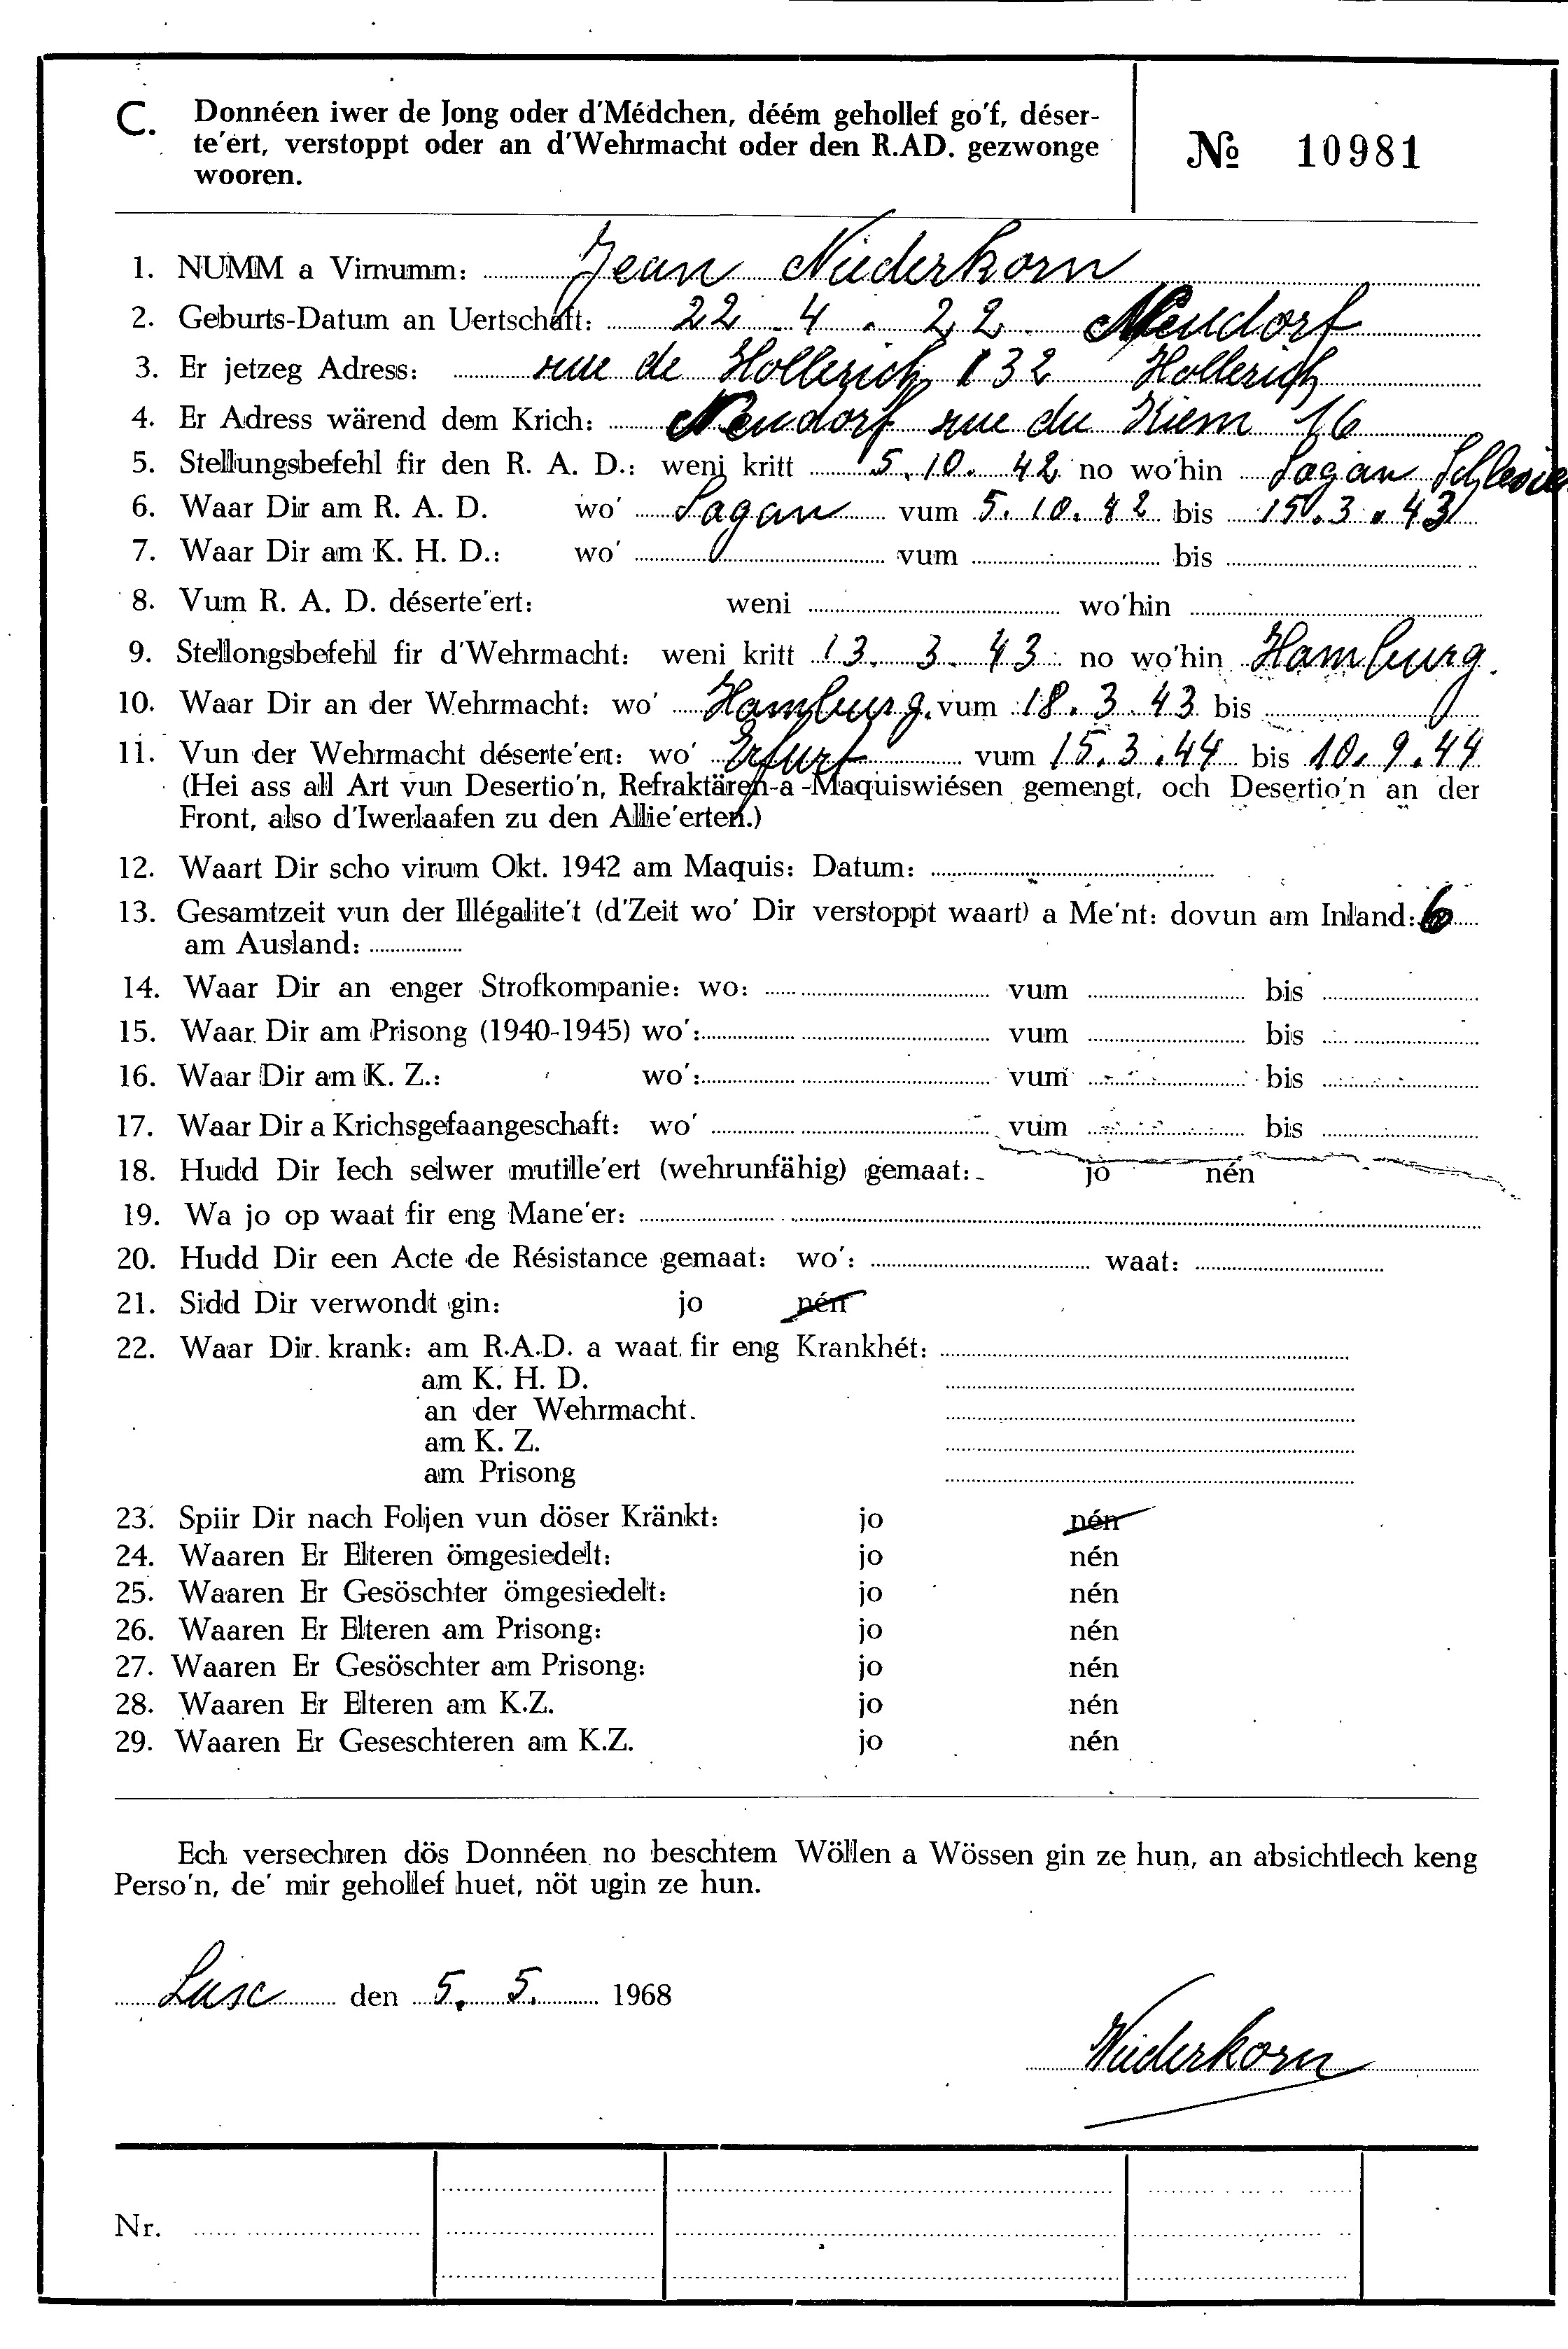 C. Donnéen iwer de Jong oder d'Médchen, déém gehollef go'f, déser-
te'ert, verstoppt oder an d'Wehrmacht oder den R.AD. gezwonge
wooren.
№ 10981
1. NUMM a Virnumm: Jean Niederkorn
2. Geburts-Datum an Uertschaft: 22.4.22. Neudorf
3. Er jetzeg Adress: rue de Hollerich 132 Hollerich
4. Er Adress wärend dem Krich: Neudorf rue du Kiem 16
5. Stellungsbefehl fir den R. A. D.: weni kritt 5.10.42 no wo'hin Sagan Schlesien
6. Waar Dir am R. A. D. wo' Sagan vum 5.10.42 bis 15.3.43
7. Waar Dir am K. H. D.: wo' vum bis
8. Vum R. A. D. déserte'ert: weni wo'hin
9. Stellongsbefehl fir d'Wehrmacht: weni kritt 13.3.43 no wo'hin Hamburg.
10. Waar Dir an der Wehrmacht: wo' Hamburg. vum 18.3.43 bis
11. Vun der Wehrmacht déserte'ert: wo' Erfurt vum 15.3.44 bis 10.9.44
(Hei ass all Art vun Desertio'n, Refraktären-a-Maquiswiésen gemengt, och Desertio'n an der
Front, also d'Iwerlaafen zu den Allie'erten.)
12. Waart Dir scho virum Okt. 1942 am Maquis: Datum:
13. Gesamtzeit vun der Illégalite't (d'Zeit wo' Dir verstoppt waart) a Me'nt: dovun am Inland: 6
am Ausland:
14. Waar Dir an enger Strofkompanie: wo: vum bis
15. Waar Dir am Prisong (1940-1945) wo': vum bis
16. Waar Dir am K. Z.: wo': vum bis
17. Waar Dir a Krichsgefaangeschaft: wo' vum bis
18. Hudd Dir Iech selwer mutille'ert (wehrunfähig) gemaat: jo nén
19. Wa jo op waat fir eng Mane'er:
20. Hudd Dir een Acte de Résistance gemaat: wo': waat:
21. Sidd Dir verwondt gin: jo nén
22. Waar Dir krank: am R.A.D. a waat fir eng Krankhét:
am K. H. D.
an der Wehrmacht.
am K. Z.
am Prisong
23. Spiir Dir nach Foljen vun döser Kränkt: jo nén
24. Waaren Er Elteren ömgesiedelt: jo nén
25. Waaren Er Gesöschter ömgesiedelt: jo nén
26. Waaren Er Elteren am Prisong: jo nén
27. Waaren Er Gesöschter am Prisong: jo nén
28. Waaren Er Elteren am K.Z. jo nén
29. Waaren Er Geseschteren am K.Z. jo nén
Ech versechren dös Donnéen no beschtem Wöllen a Wössen gin ze hun, an absichtlech keng
Perso'n, de' mir gehollef huet, nöt ugin ze hun.
den 5. 5. 1968
Niederkorn
Nr.